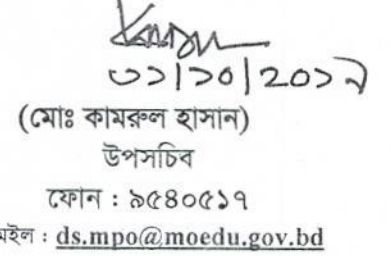 ৩১/১০/২০১৯
(মোঃ কামরুল হাসান)
উপসচিব
ফোন : ৯৫৪০৫১৭
মইল : ds.mpo@moedu.gov.bd